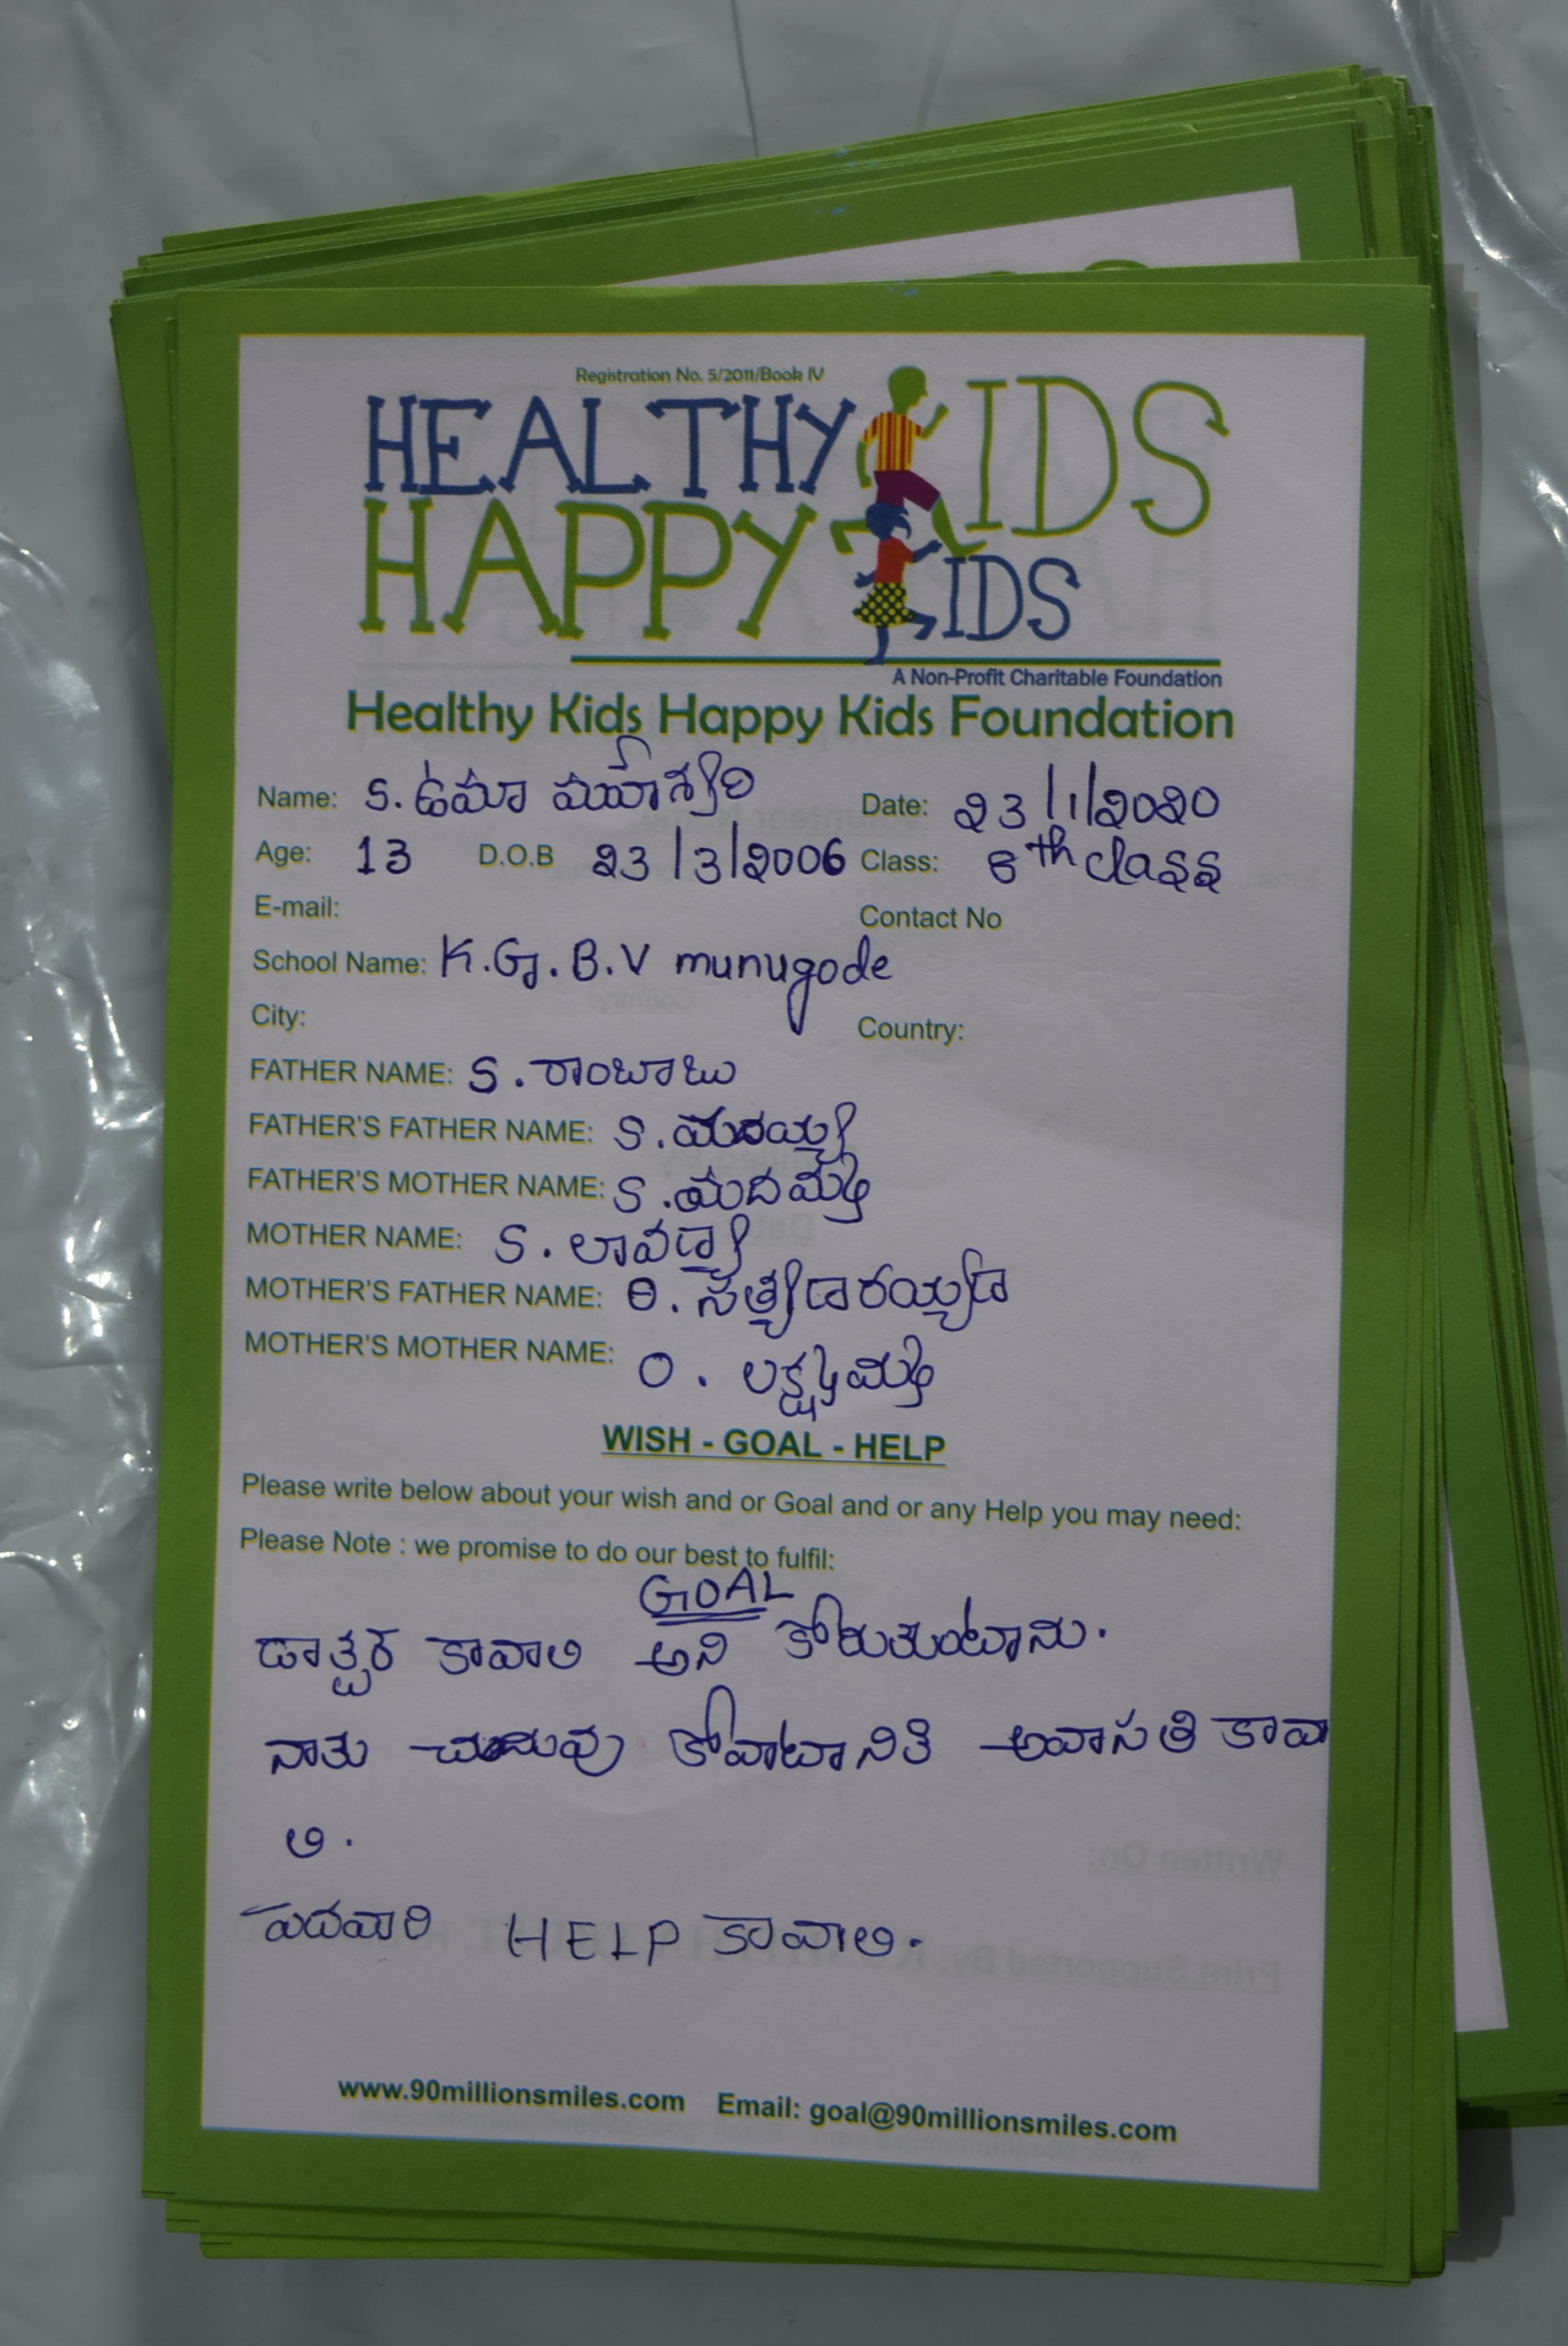 Registration No. 5/2011/Book IV
HEALTHY KIDS
HAPPY KIDS
A Non-Profit Charitable Foundation
Healthy Kids Happy Kids Foundation
Name: S. ఉమా మహేశ్వరి Date: 23/1/2020
Age: 13 D.O.B 23/3/2006 Class: 8th class
E-mail: Contact No
School Name: K.G.B.V munugode
City: Country:
FATHER NAME: S. రాంబాబు
FATHER'S FATHER NAME: S.
FATHER'S MOTHER NAME: S.
MOTHER NAME: S. లావణ్య
MOTHER'S FATHER NAME:
MOTHER'S MOTHER NAME: O. లక్ష్మమ్మ
WISH - GOAL - HELP
Please write below about your wish and or Goal and or any Help you may need:
Please Note : we promise to do our best to fulfil:
GOAL
కావాలి అని కోరుతుంటాను.
కావా
లి.
HELP కావాలి.
www.90millionsmiles.com Email: goal@90millionsmiles.com